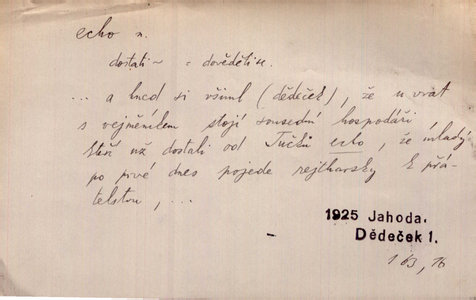 echo n.
dostali ~ = dověděli se.
... a hned si všiml (dědeček), že u vrat
s vejměníkem stojí sousední hospodáři
kteří už dostali od Tučků echo, že mladý
po prvé dnes pojede rejtharsky k přá-
telstvu, ...
1925 Jahoda.
Dědeček 1.
163, 16